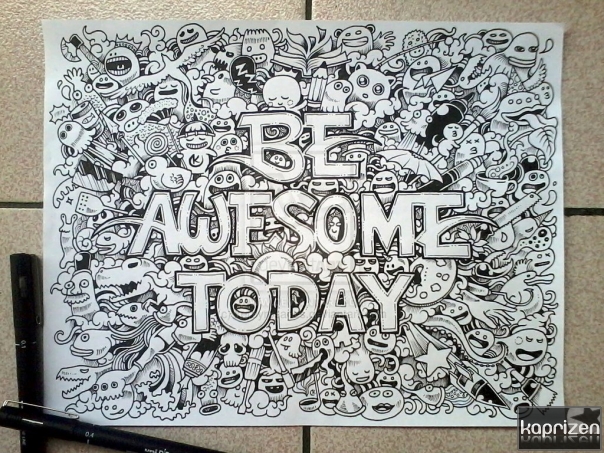 BE
AWESOME
TODAY
0.4
kaprizen